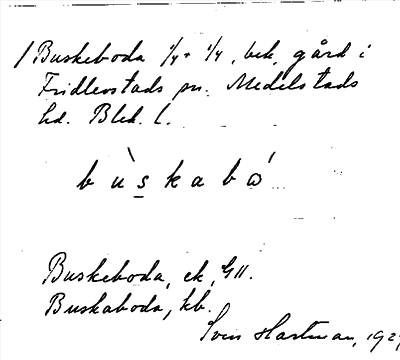 Buskeboda 1/4 + 1/4, bek. gård i
Fridlevstads sn. Medelstads
hd. Blek. l.
bùskabó
Buskeboda, ek, GII.
Buskaboda, kb.
Sven Hartman, 192